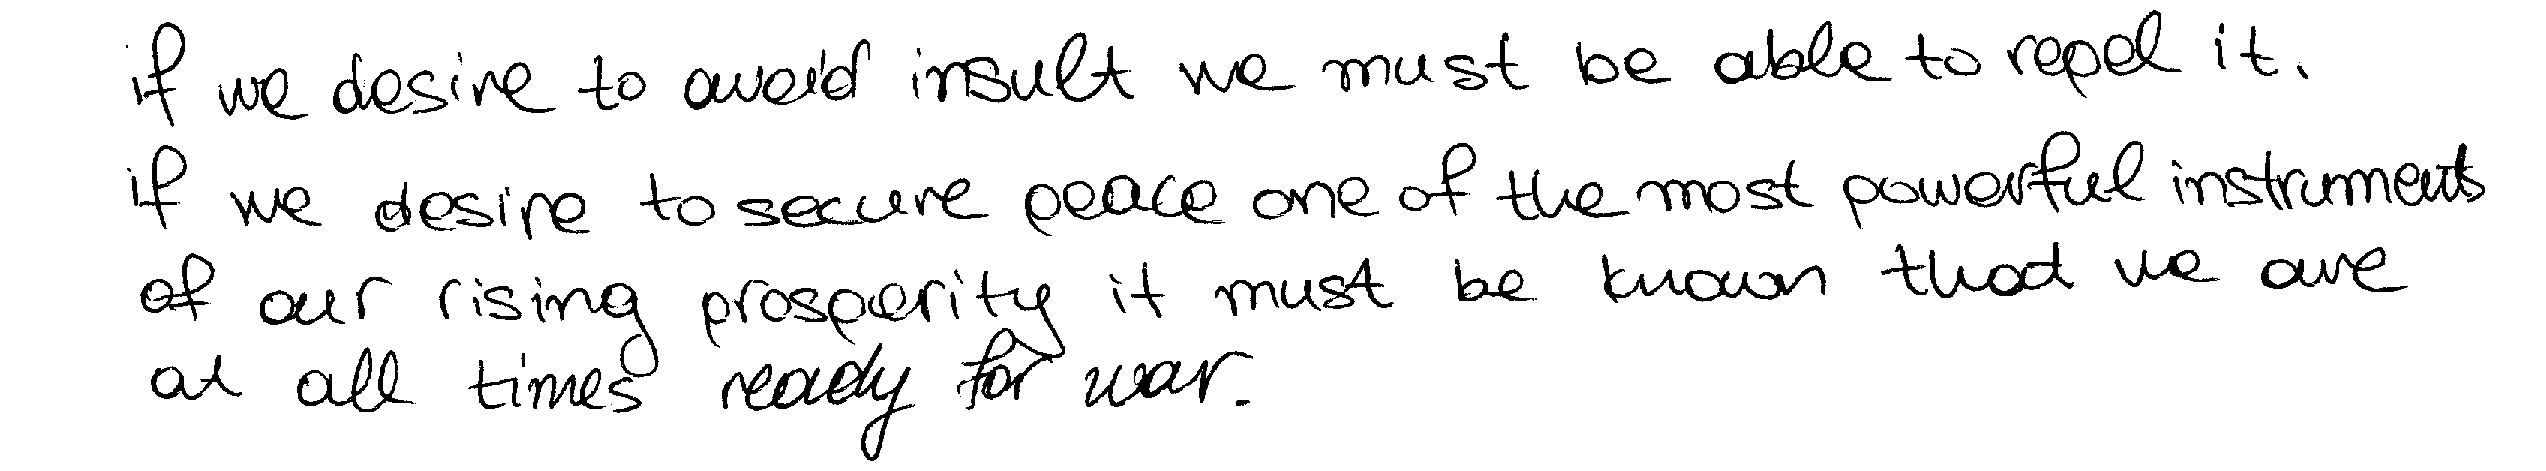 if we desire to avoid insult we must be able to repel it.
if we desire to secure peace one of the most powerful instruments
of our rising prosperity it must be known that we are
at all times ready for war.